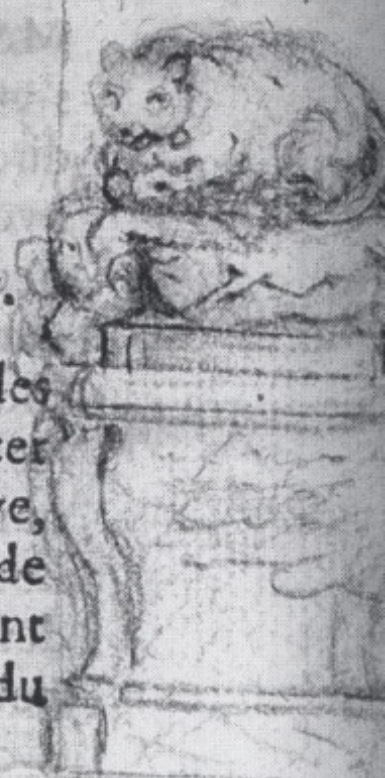 les
cer
ve,
de
nt
du